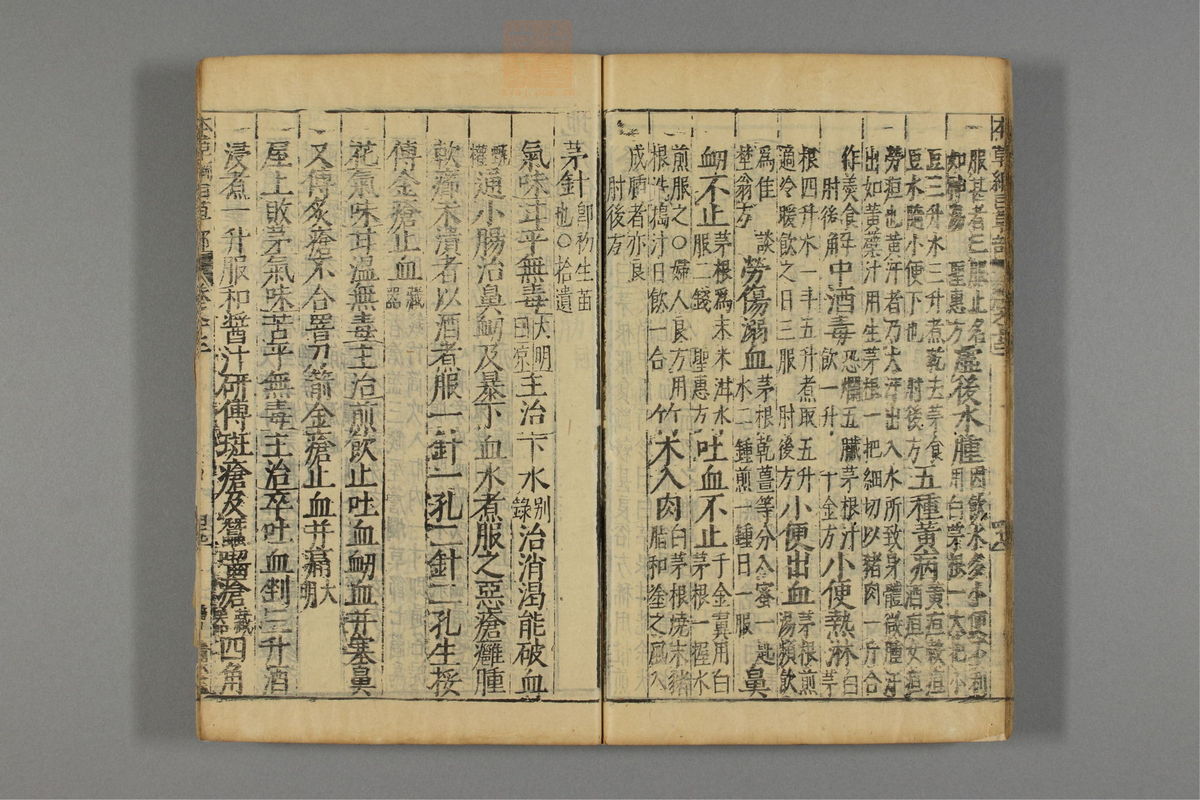 服甚者三服止名如神湯 聖惠方 虛後水腫 因飲水多小便不利用白茅根一大把小
豆三升水三升煮乾去茅食豆水隨小便下也 肘後方 五種黃病 黃疸穀疸酒疸女疸
勞疸也黃汗者乃大汗出入水所致身體微腫汗出如黃蘗汁用生茅根一把細切以豬肉一斤合
作羹食 肘後 解中酒毒 恐爛五臟茅根汁飲一升 千金方 小便熱淋 白茅
根四升水一斗五升煮取五升適冷暖飲之日三服 肘後方 小便出血 茅根煎湯頻飲
爲佳 談埜翁方 勞傷溺血 茅根乾薑等分入蜜一匙水二鍾煎一鍾日一服 鼻
衄不止 茅根爲末米泔水服二錢 聖惠方 吐血不止 千金翼用白茅根一握水
煎服之○婦人良方用根洗搗汁日飲一合 竹木入肉 白茅根燒末豬脂和塗之風入
成腫者亦良 肘後方
茅針 卽初生苗也○拾遺
氣味甘平無毒 大明曰凉 主治下水 別錄 治消渴能破血
甄權 通小腸治鼻衄及暴下血水煮服之惡瘡癰腫
軟癤未潰者以酒煮服一針一孔二針二孔生挼
傅金瘡止血 藏器
花氣味甘溫無毒主治煎飲止吐血衄血并塞鼻
又傅灸瘡不合署刀箭金瘡止血并痛 大明
屋上敗茅氣味苦平無毒主治卒吐血剉三升酒
浸煮一升服和醬汁研傅斑瘡及蠶齧瘡 藏器 四角